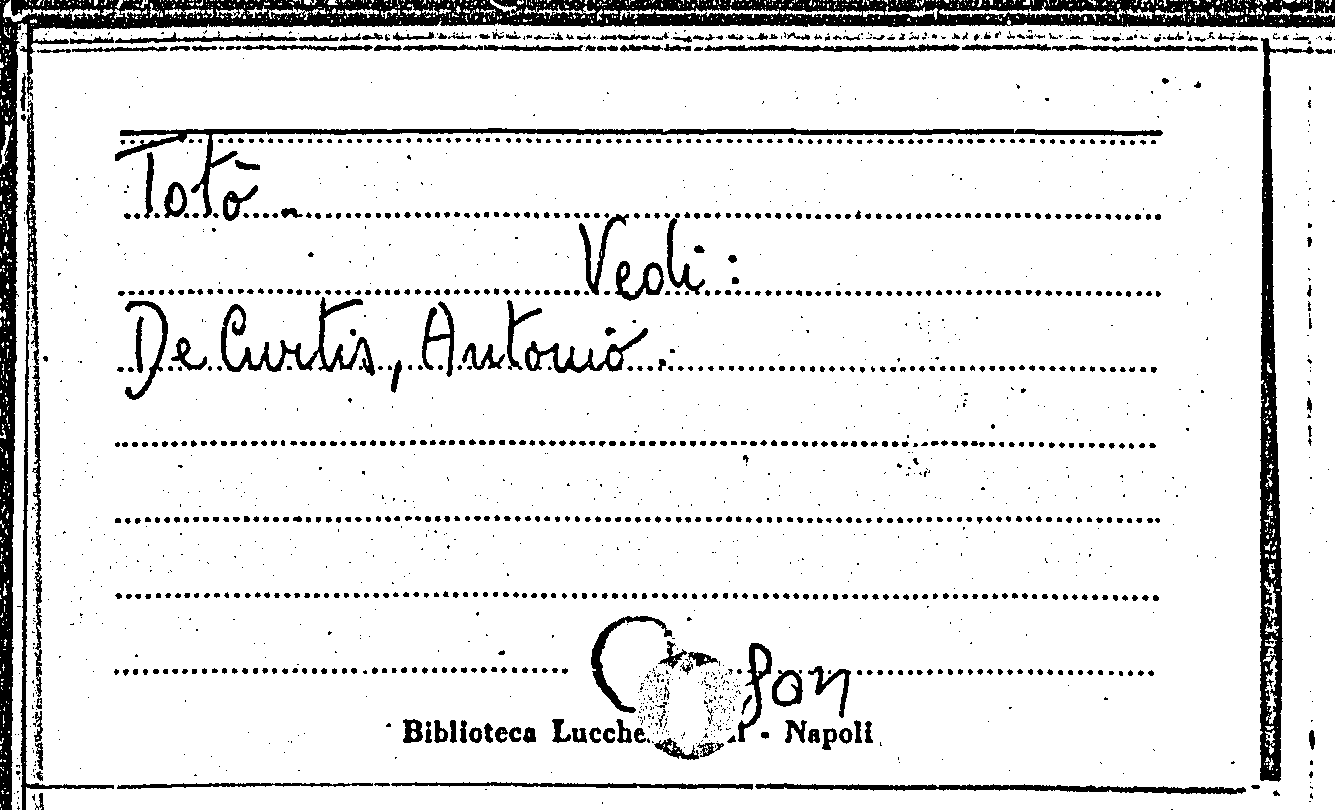 Totò -
Vedi:
De Curtis, Antonio.
fon
Biblioteca - Napoli